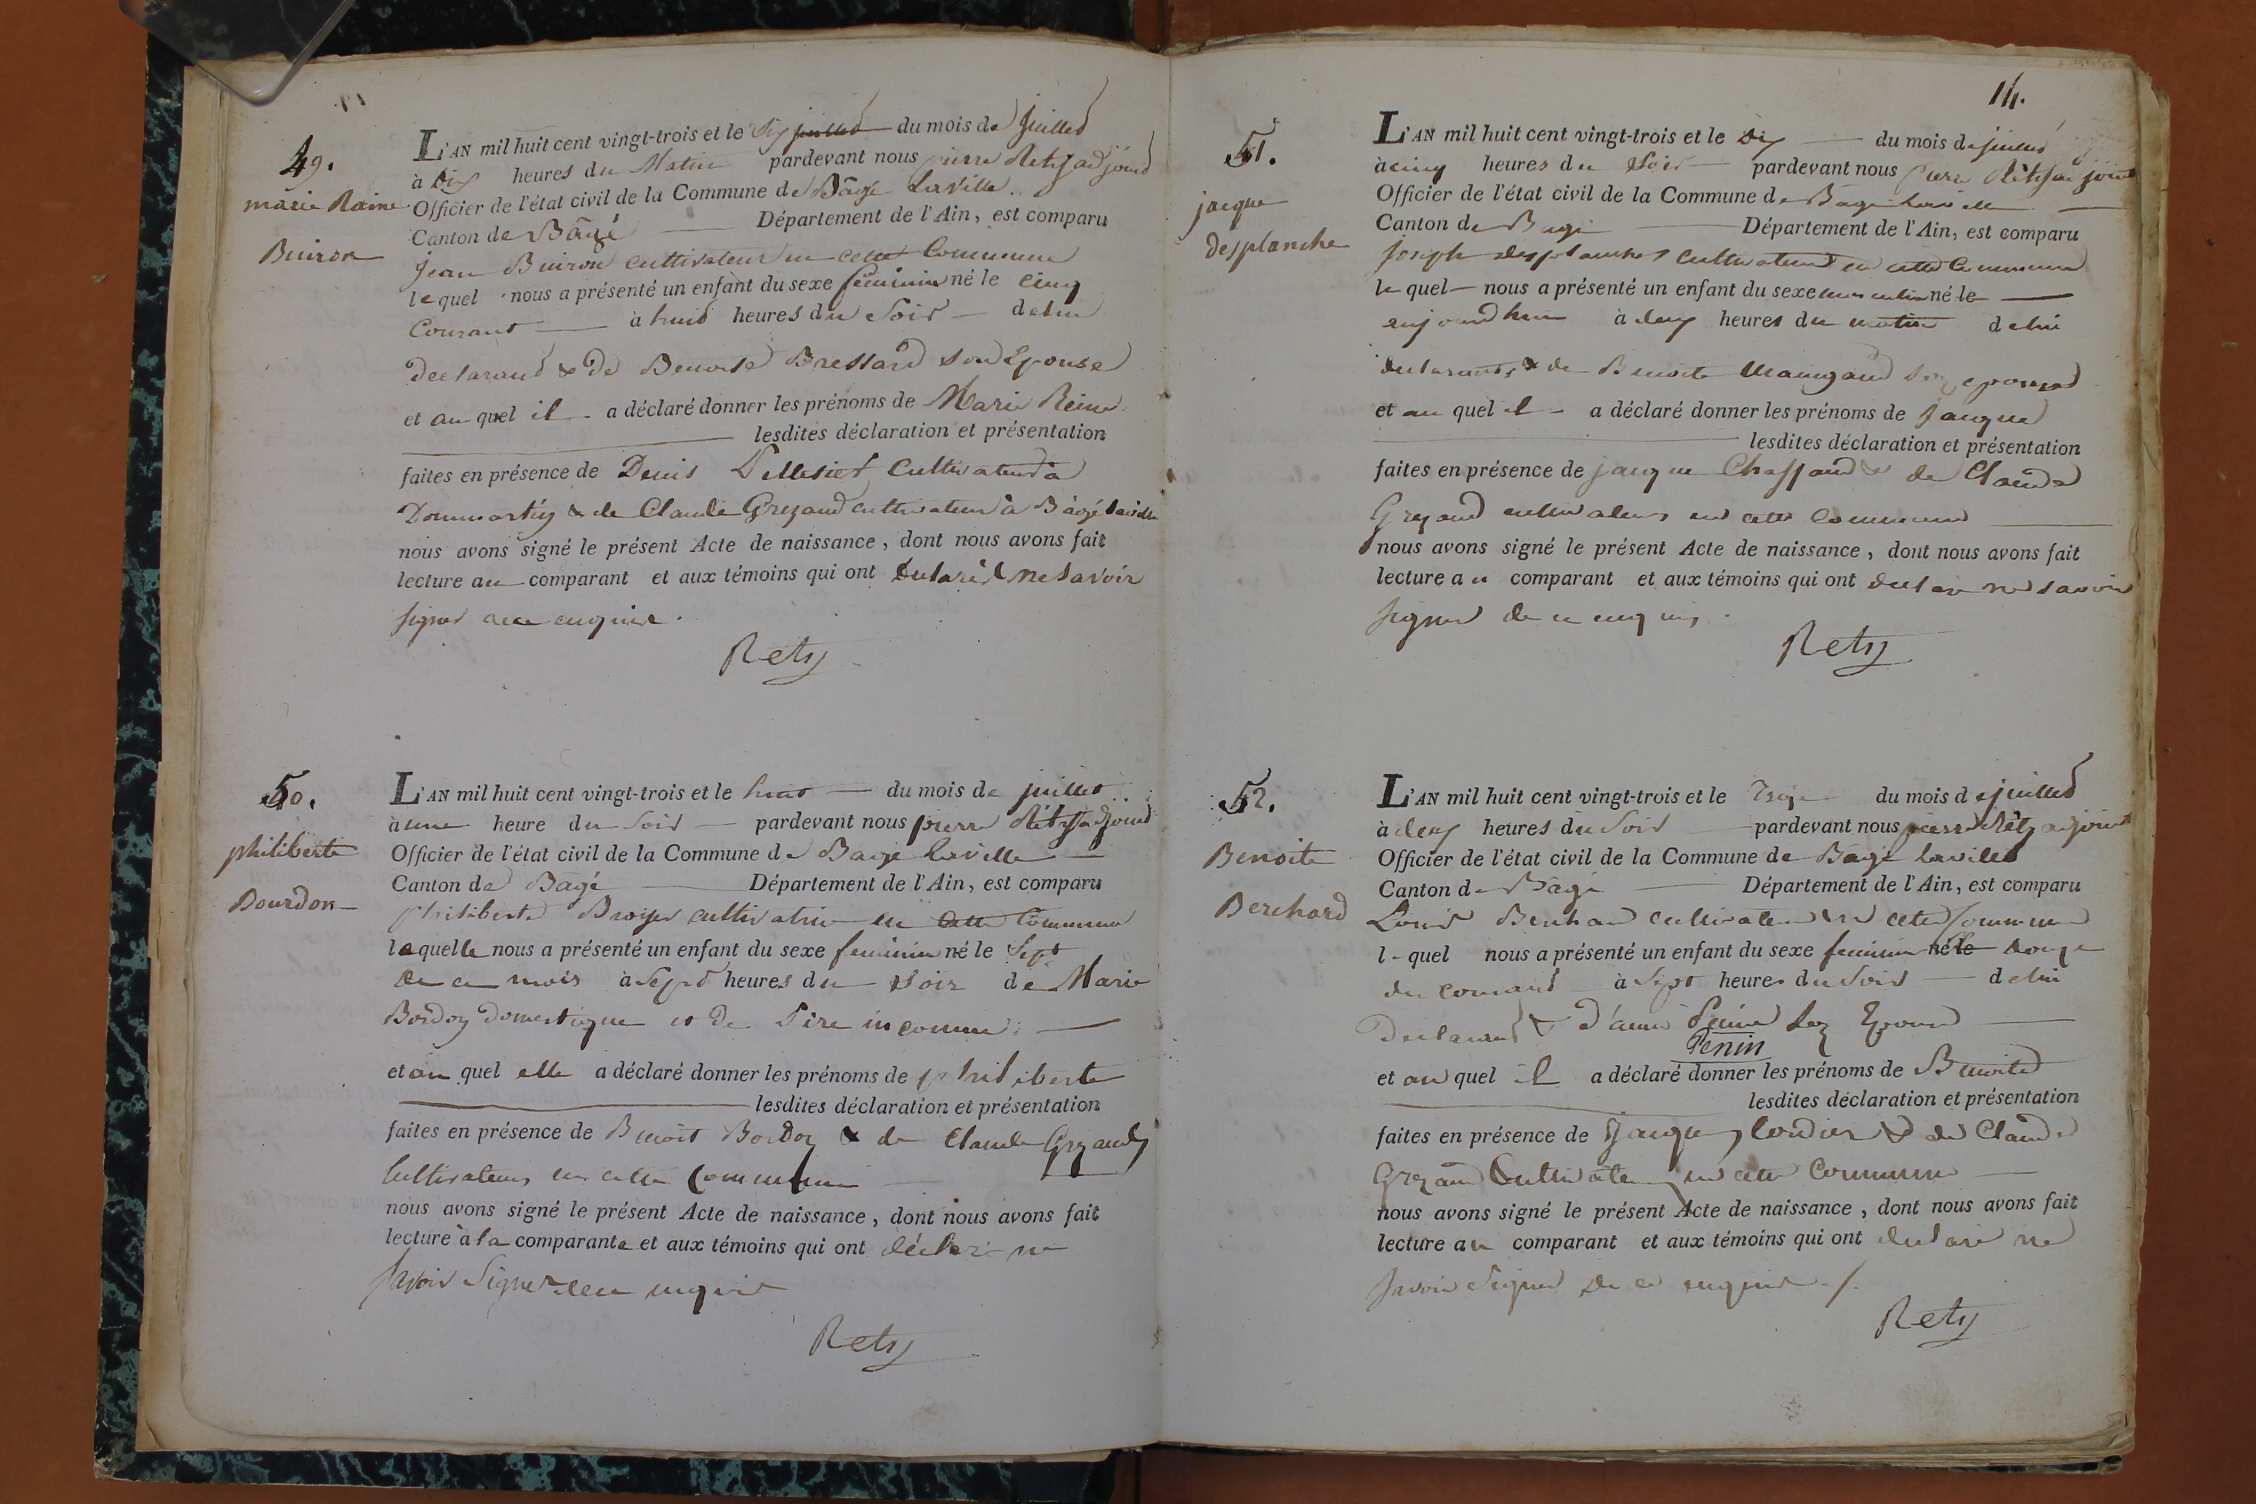 49.
marie Raine
Buiron
L'AN mil huit cent vingt-trois et le six juillet du mois de juillet
à dix heures du Matin pardevant nous pierre Réty adjoint
Officier de l'état civil de la Commune de Bâgé Laville
Canton de Bâgé Département de l'Ain, est comparu
Jean Buiron cultivateur en cette Commune
lequel nous a présenté un enfant du sexe feminin né le cinq
Courant à huit heures du Soir de lui
declarant & de Benoite Bressard son Epouse
et au quel il a déclaré donner les prénoms de Marie Reine
lesdites déclaration et présentation
faites en présence de Denis Cultivateur à
Dommartin & de Claude Grezaud cultivateur à Bâgé laville
nous avons signé le présent Acte de naissance, dont nous avons fait
lecture au comparant et aux témoins qui ont declaré ne savoir
signer de ce enquis.
Rety
50.
philiberte
Bourdon
L'AN mil huit cent vingt-trois et le huit du mois de juillet
à une heure du soir pardevant nous pierre Réty adjoint
Officier de l'état civil de la Commune de Bagé laville
Canton de Bagé Département de l'Ain, est comparu
philiberte Broyer cultivatrice en cette Commune
laquelle nous a présenté un enfant du sexe feminin né le sept
de ce mois à sept heures du soir de Marie
Bordon domestique et de Pere inconnu
et au quel elle a déclaré donner les prénoms de philiberte
lesdites déclaration et présentation
faites en présence de Benoit Bordon & de Claude Grezaud
Cultivateurs en cette Commune
nous avons signé le présent Acte de naissance, dont nous avons fait
lecture à la comparante et aux témoins qui ont déclaré ne
savoir signer de ce enquis
Rety
14.
51.
jacque
desplanche
L'AN mil huit cent vingt-trois et le dix du mois de juillet
à cinq heures du soir pardevant nous pierre Réty adjoint
Officier de l'état civil de la Commune de Bagé laville
Canton de Bagé Département de l'Ain, est comparu
joseph desplanches cultivateur en cette Commune
le quel nous a présenté un enfant du sexe masculin né le
aujourdhui à deux heures du matin de lui
declarant & de Benoite Maingaud son epouse
et au quel il a déclaré donner les prénoms de jacque
lesdites déclaration et présentation
faites en présence de jacque Chassaud & de Claude
Grezaud cultivateurs en cette Commune
nous avons signé le présent Acte de naissance, dont nous avons fait
lecture au comparant et aux témoins qui ont declaré ne savoir
signer de ce enquis
Rety
52.
Benoite
Berchard
L'AN mil huit cent vingt-trois et le treize du mois de juillet
à deux heures du Soir pardevant nous pierre Réty adjoint
Officier de l'état civil de la Commune de Bâgé laville
Canton de Bâgé Département de l'Ain, est comparu
Louis Berchard cultivateur en cette Commune
lequel nous a présenté un enfant du sexe feminin né le douze
du courant à sept heures du Soir de lui
declarant & d'anne Penin son Epouse
Penin
et au quel il a déclaré donner les prénoms de Benoite
lesdites déclaration et présentation
faites en présence de Jacque Cordier & de Claude
Grezaud Cultivateurs en cette Commune
nous avons signé le présent Acte de naissance, dont nous avons fait
lecture au comparant et aux témoins qui ont declaré ne
savoir signer de ce enquis
Rety